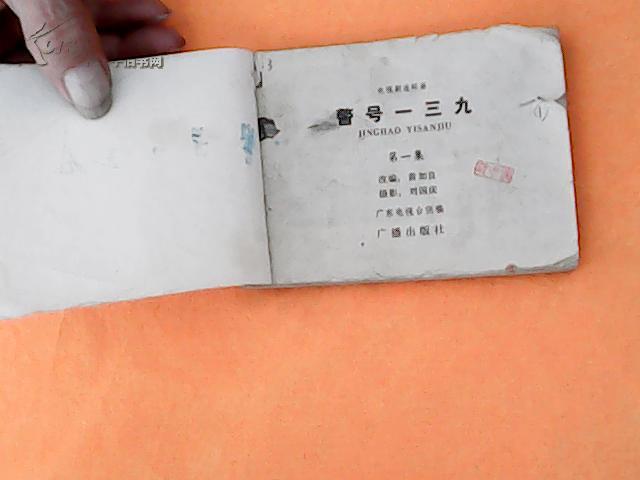 电视剧连环画
警号一三九
JINGHAO YISANJIU
第一集
改编：黄加良
摄影：刘国庆
广东电视台供稿
广播出版社